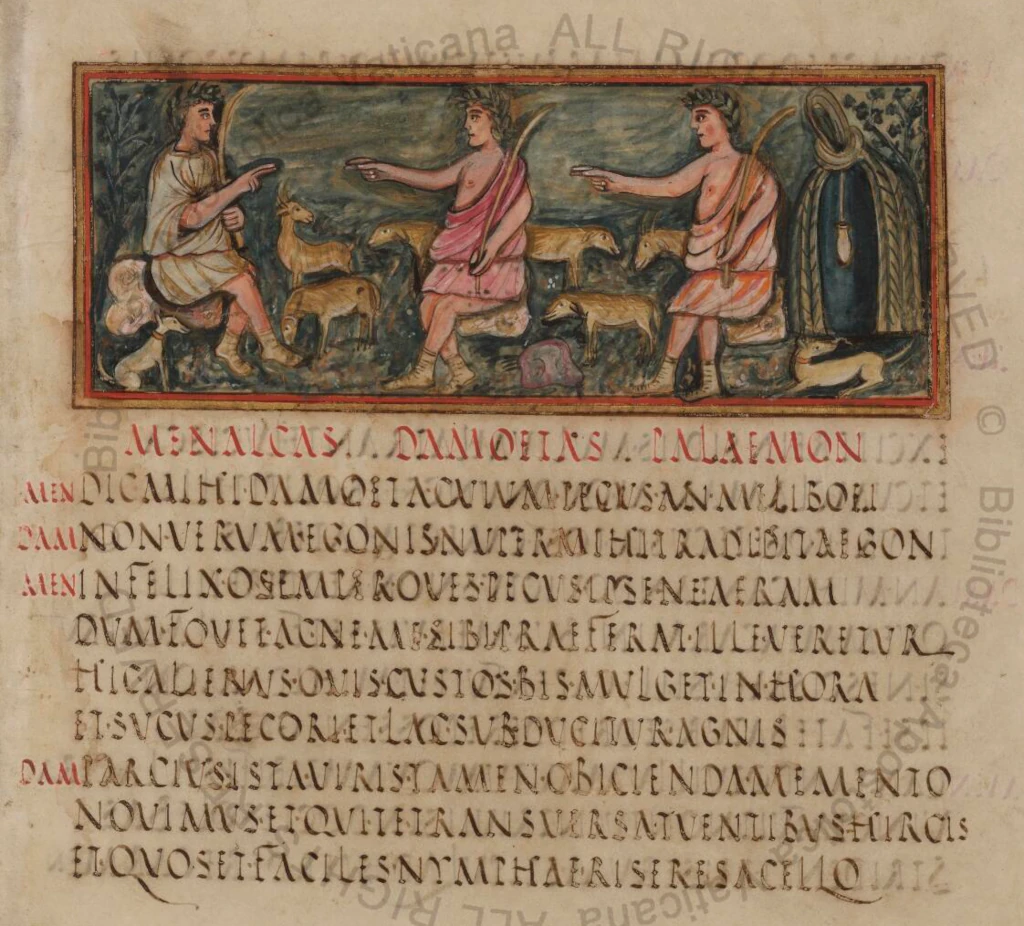 MENALCAS · DAMOETAS · PALAEMON
MEN DIC·MIHI·DAMOETA·CVIVM·PECUS·AN·MELIBOEI
DAM NON·VERVM·AEGONIS·NVPER·MIHI·TRADIDIT·AEGON
MEN INFELIX·O·SEMPER·OVES·PECUS·IPSE·NEAERAM
DUM·FOVET·AC·NE·ME·SIBI·PRAEFERAT·ILLE·VERETUR
HIC·ALIENUS·OVIS·CUSTOS·BIS·MULGET·IN·HORA
ET·SUCUS·PECORI·ET·LAC·SUBDUCITUR·AGNIS
DAM PARCIUS·ISTA·VIRIS·TAMEN·OBICIENDA·MEMENTO
NOVIMUS·ET·QUI·TE·TRANSVERSA·TUENTIBUS·HIRCIS
ET·QUO·SET·FACILES·NYMPHAE·RISERE·SACELLO